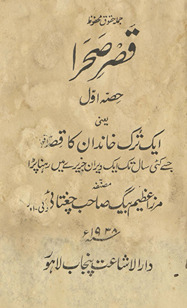 جملہ حقوق محفوظ
قصرِ صحرا
حصہ اول
یعنی
ایک ترک خاندان کا قصہ
جسے کئی سال تک ایک ویران جزیرے میں رہنا پڑا
مصنفہ
مرزا عظیم بیگ صاحب چغتائی
۱۹۳۸ء
دارالاشاعت پنجاب لاہور